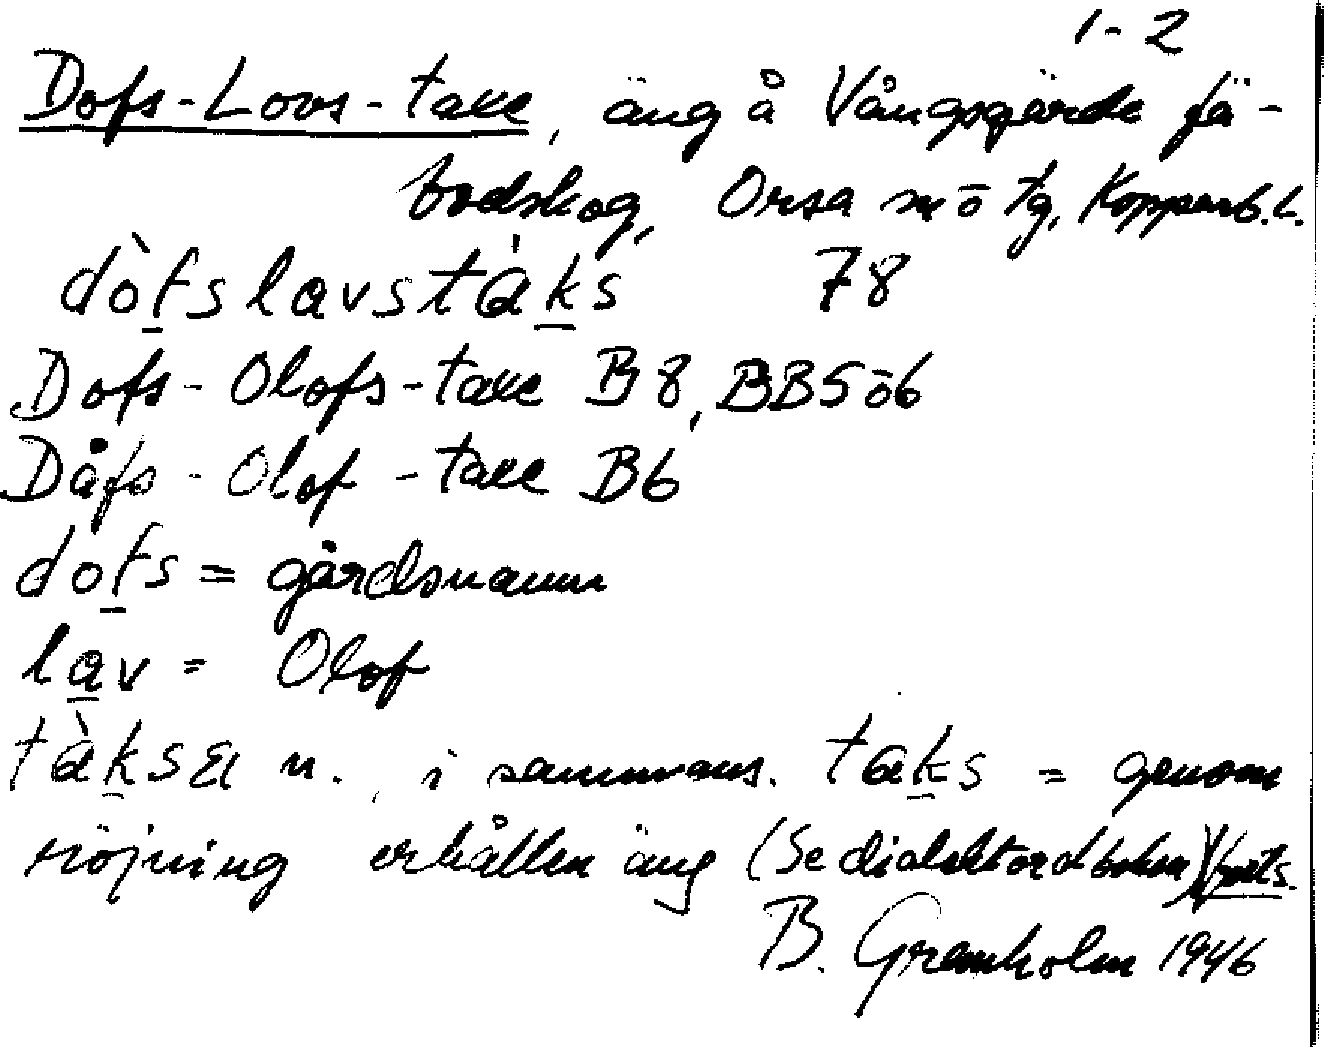 1-2
Dofs-Loos-take, äng å Vångsgärde fä-
bodskog, Orsa sn ō tg, Kopparb. l.
dòfslavstàks 78
Dofs-Olofs-take B8, BB5ō6
Dåfs-Olof-take B6
dofs = gårdsnamn
lav = Olof
tàksɛl n., i sammans. taks = genom
röjning erhållen äng (Se dialektordboken) (forts.
B. Granholm 1946